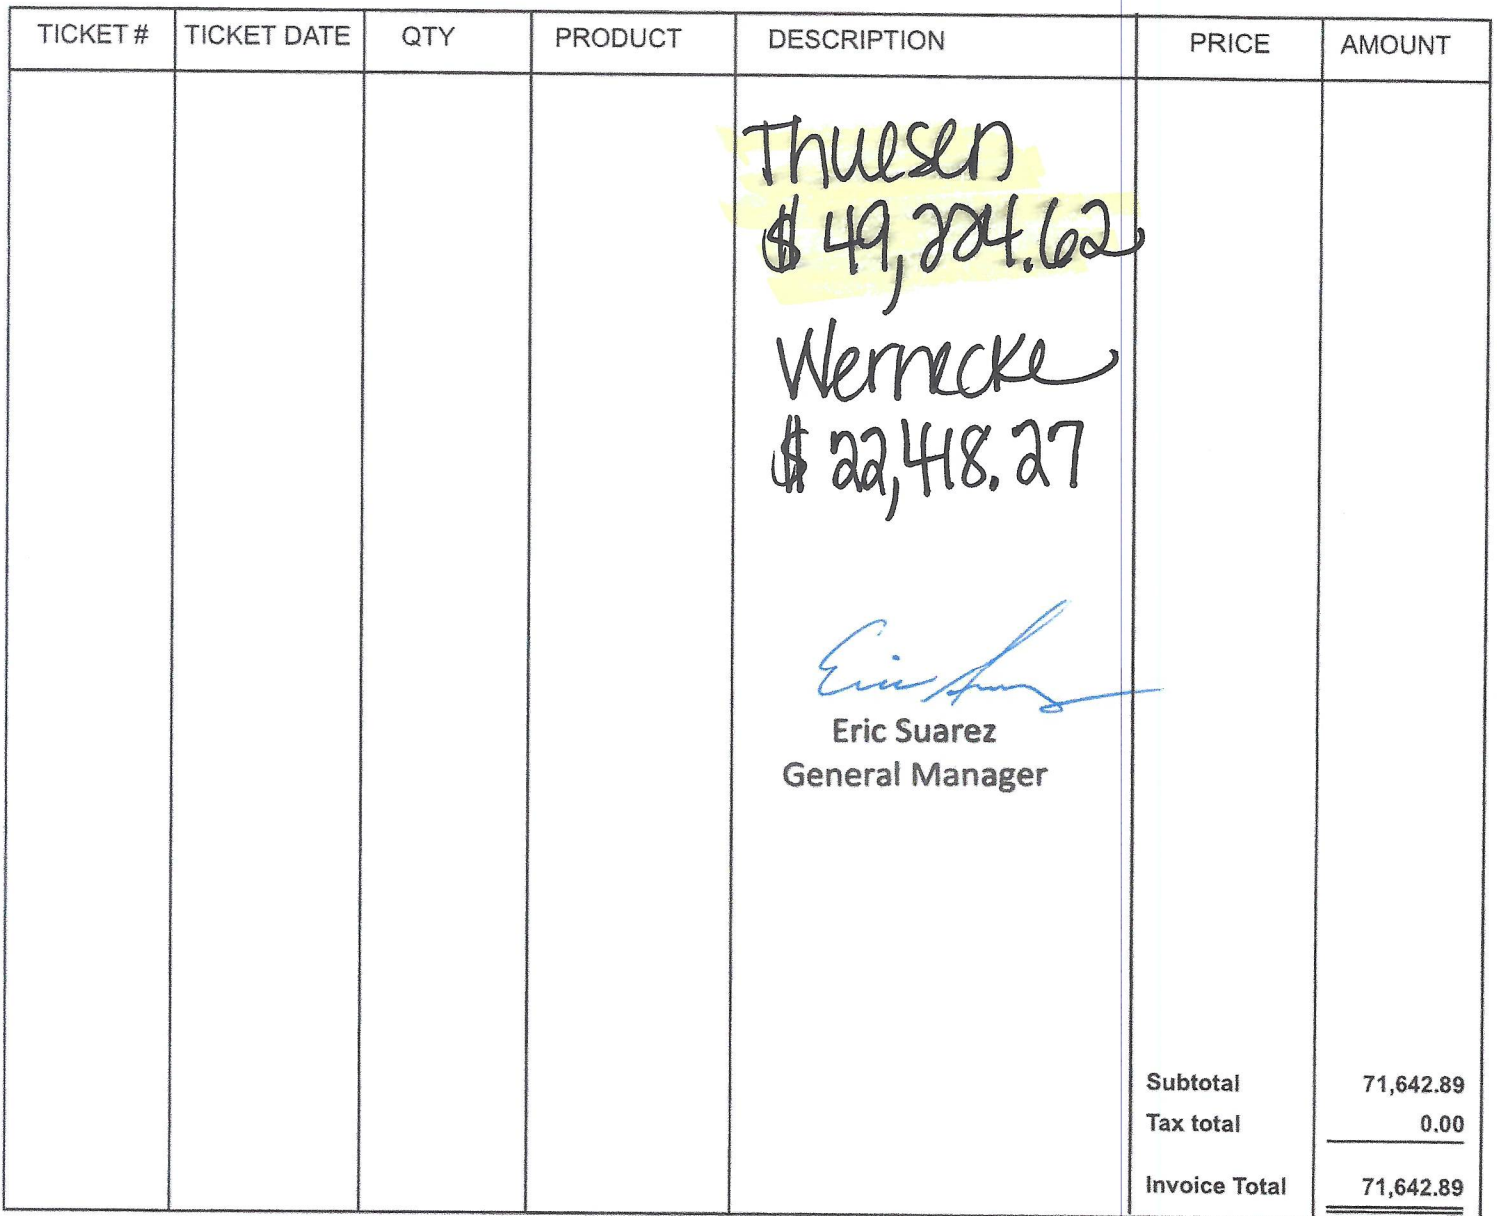 TICKET # TICKET DATE QTY PRODUCT DESCRIPTION PRICE AMOUNT
Thuesen
$ 49,224.62
Wernecke
$ 22,418.27
Eric Suarez
Eric Suarez
General Manager
Subtotal 71,642.89
Tax total 0.00
Invoice Total 71,642.89